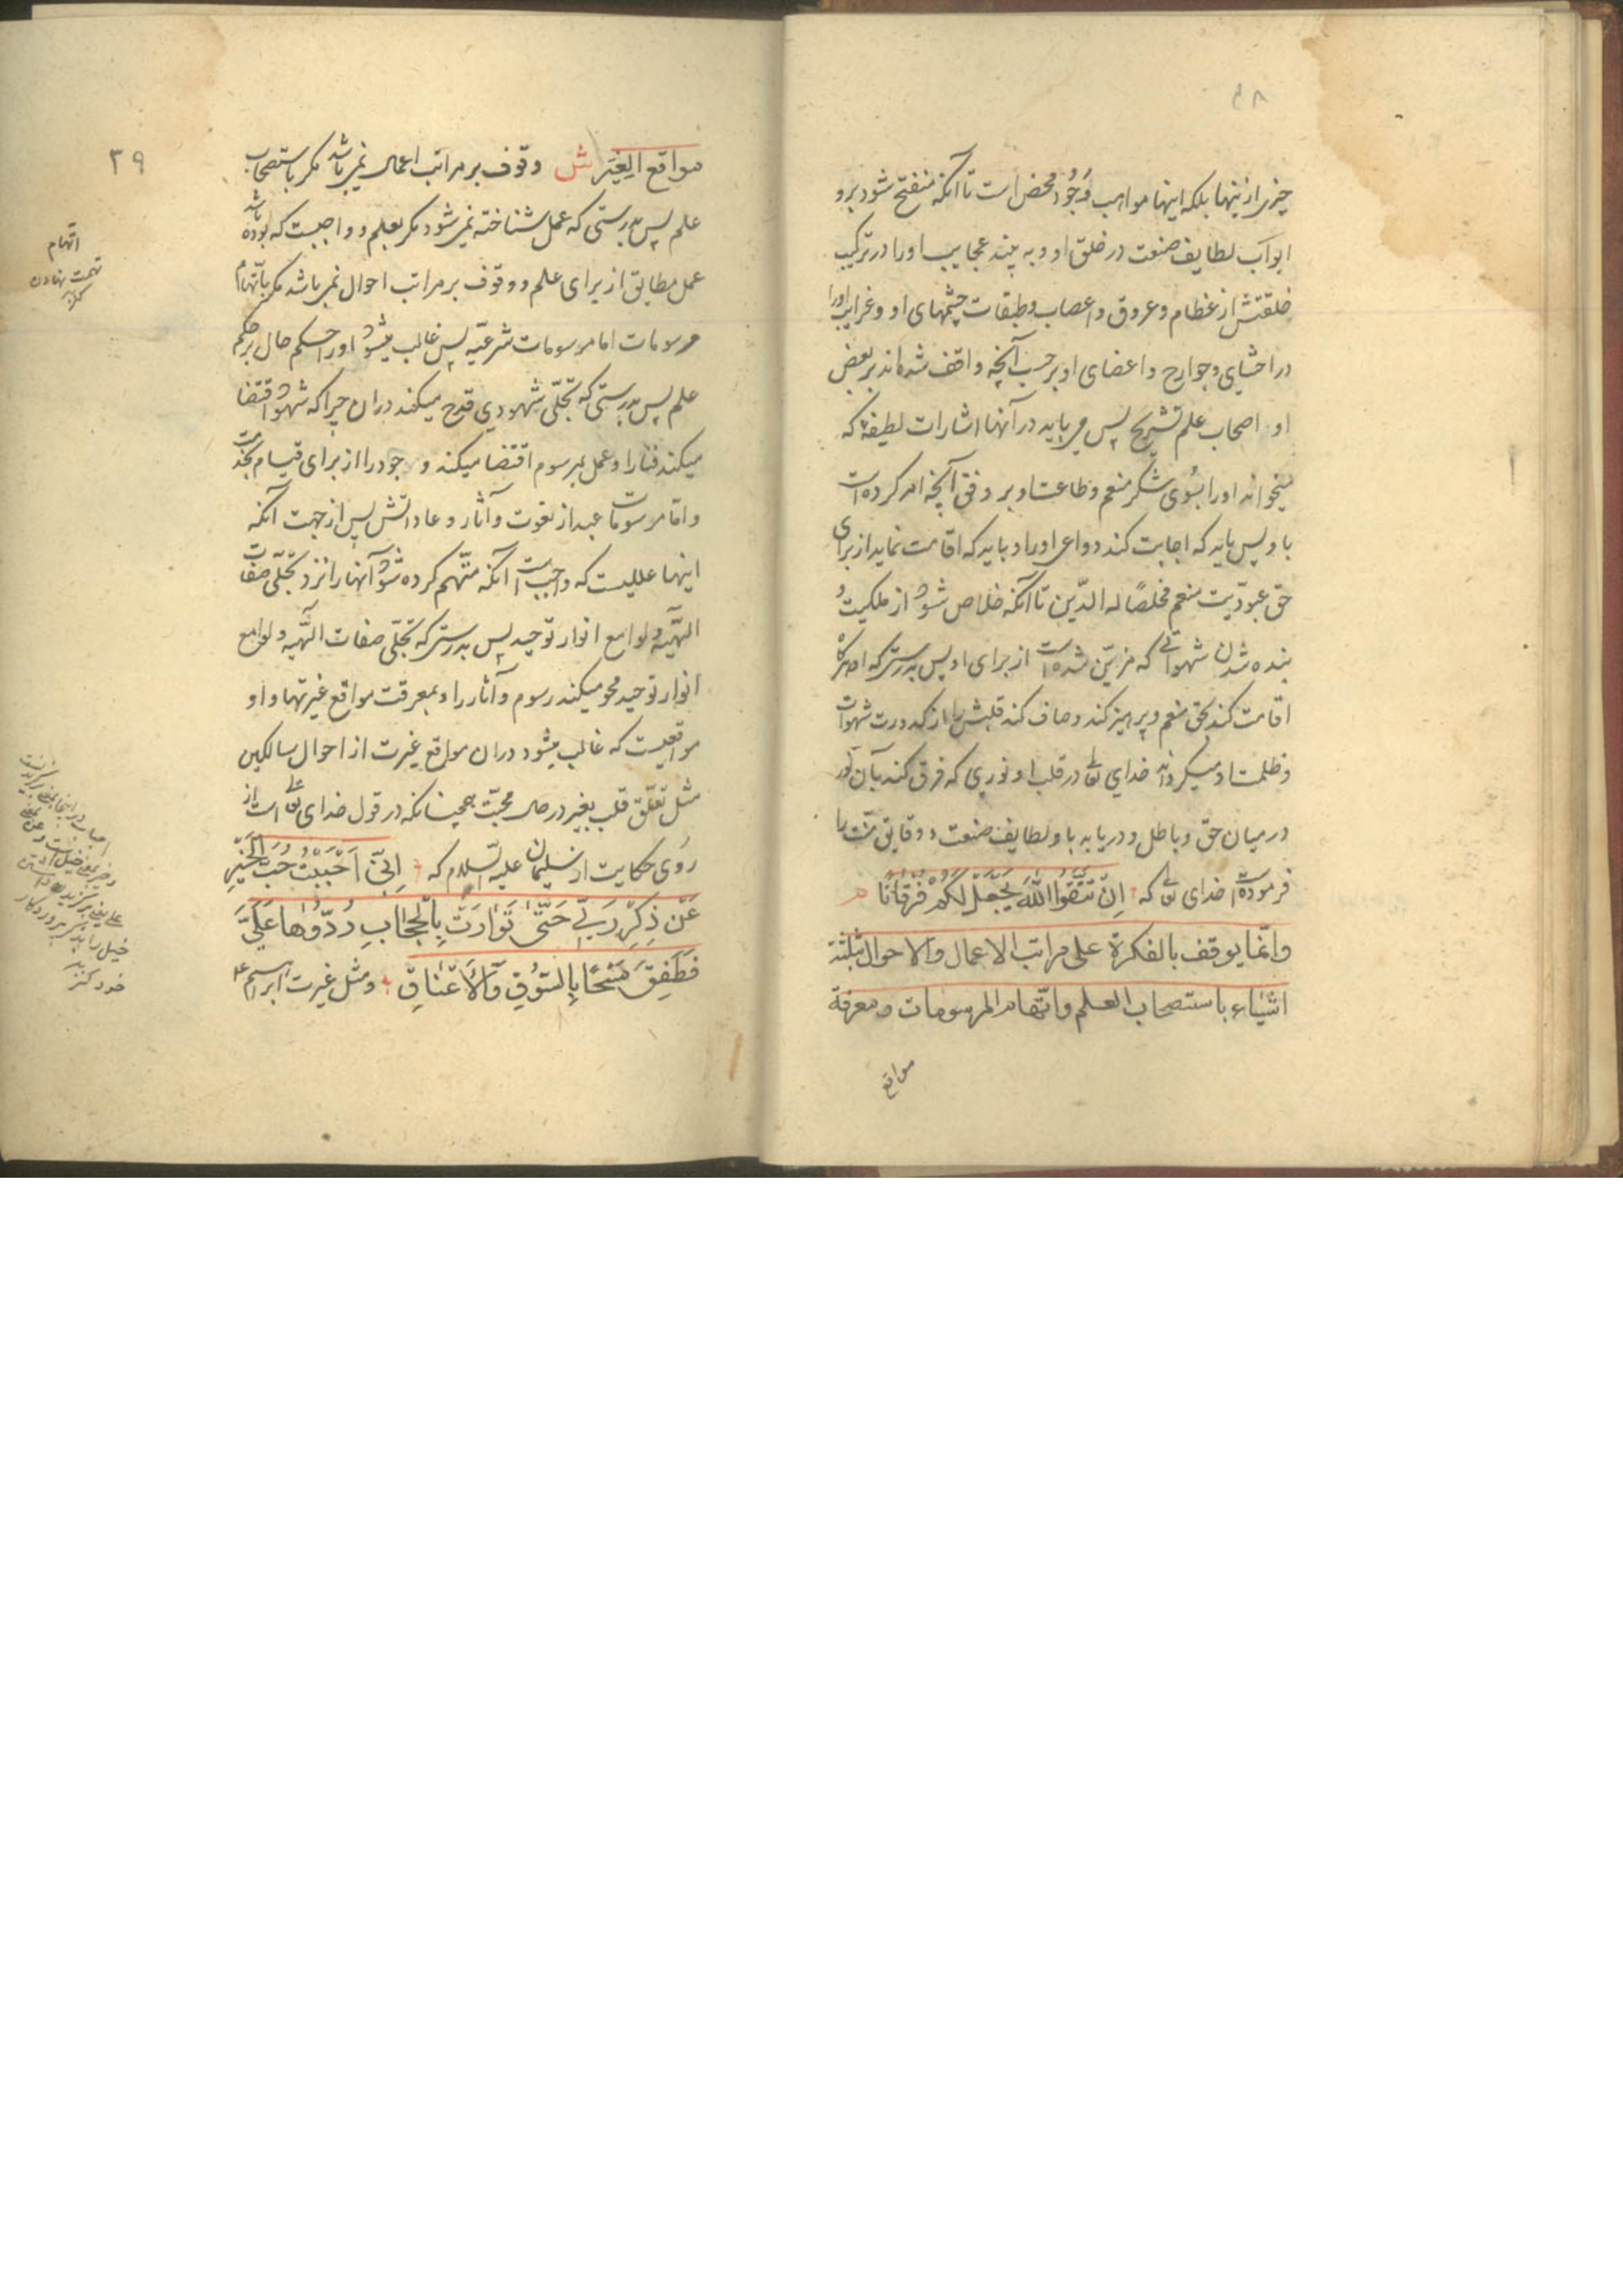 چیزی از اینها بلکه اینها مواهب وُجُود محض است تا آنکه منفتح شود برو
ابواب لطایف صنعت در خلق او و به بیند عجایب او را در ترکیب
خلقتش از عظام و عروق و اعصاب و طبقات چشمهای او و غرایب او را
در احشای و جوارح و اعضای او بر حسب آنچه واقف شده‌اند بر بعض
او اصحاب علم تشریح پس می‌یابد در آنها اشارات لطیفه که
میخواند او را بسُوی شکر منعم و طاعت او بر وفق آنچه امر کرده است
باو پس باید که اجابت کند دواعی او را و باید که اقامت نماید از برای
حق عبودیت منعم مخلصًا له الدّین تا آنکه خلاص شود از ملکیت و
بنده شدن شهواتی که مزیّن شده است از برای او پس بدرستی که هرگاه
اقامت کند بحق منعم و پرهیز کند و صاف کند قلبش را از کدورت شهوات
و ظلمت او میگرداند خدای تعالی در قلب او نوری که فرق کند بآن نور
در میان حق و باطل و دریابد باو لطایف صنعت و دقایق منّت را
فرموده است خدای تعالی که اِنْ تَتَّقُوا اللّٰهَ یَجْعَلْ لَكُمْ فُرْقَانًا م
وانّما یوقف بالفکرة علی مراتب الاعمال والاحوال بثلثة
اشیاء باستصحاب العلم واتّهام المرسومات و معرفة
مواقع
۳۹
مواقع الغِیَر ش وقوف بر مراتب اعمال نمی‌باشد مگر باستصحاب
علم پس بدرستی که عمل شناخته نمی‌شود مگر بعلم و واجبست که بوده باشد
عمل مطابق از برای علم و وقوف بر مراتب احوال نمی‌باشد مگر باتّهام
مرسومات اما مرسومات شرعیّه پس غالب میشود او را حکم حال بر حکم
علم پس بدرستی که تجلّی شهودی قدح میکند در آن چرا که شهود اقتضا
میکند فنا را و عمل بمرسوم اقتضا میکند وجود را از برای قیام بخدمت
و اما مرسومات عبد از نعوت و آثار و عاداتش پس از جهت آنکه
اینها عللیست که واجب است آنکه متّهم کرده شود آنها را نزد تجلّی صفات
الهیّه و لوامع انوار توحید پس بدرستی که تجلّی صفات الهّیه و لوامع
انوار توحید محو میکند رسوم و آثار را و بمعرفت مواقع غیرتها و او
مواقعیست که غالب میشود در آن مواقع غیرت از احوال سالکین
مثل تعلّق قلب بغیر در حال محبّت همچنانکه در قول خدای تعالی است از
رُوی حکایت از سلیمان علیه السّلام که اِنّی اَحْبَبْتُ حُبَّ الْخَیْرِ
عَنْ ذِكْرِ رَبّی حَتّٰی تَوَارَتْ بِالْحِجَابِ رُدُّوهَا عَلَیَّ
فَطَفِقَ مَسْحًا بِالسُّوقِ وَالْاَعْنَاقِ و مثل غیرت ابراهیم ع
اتّهام
تهمت نهادن